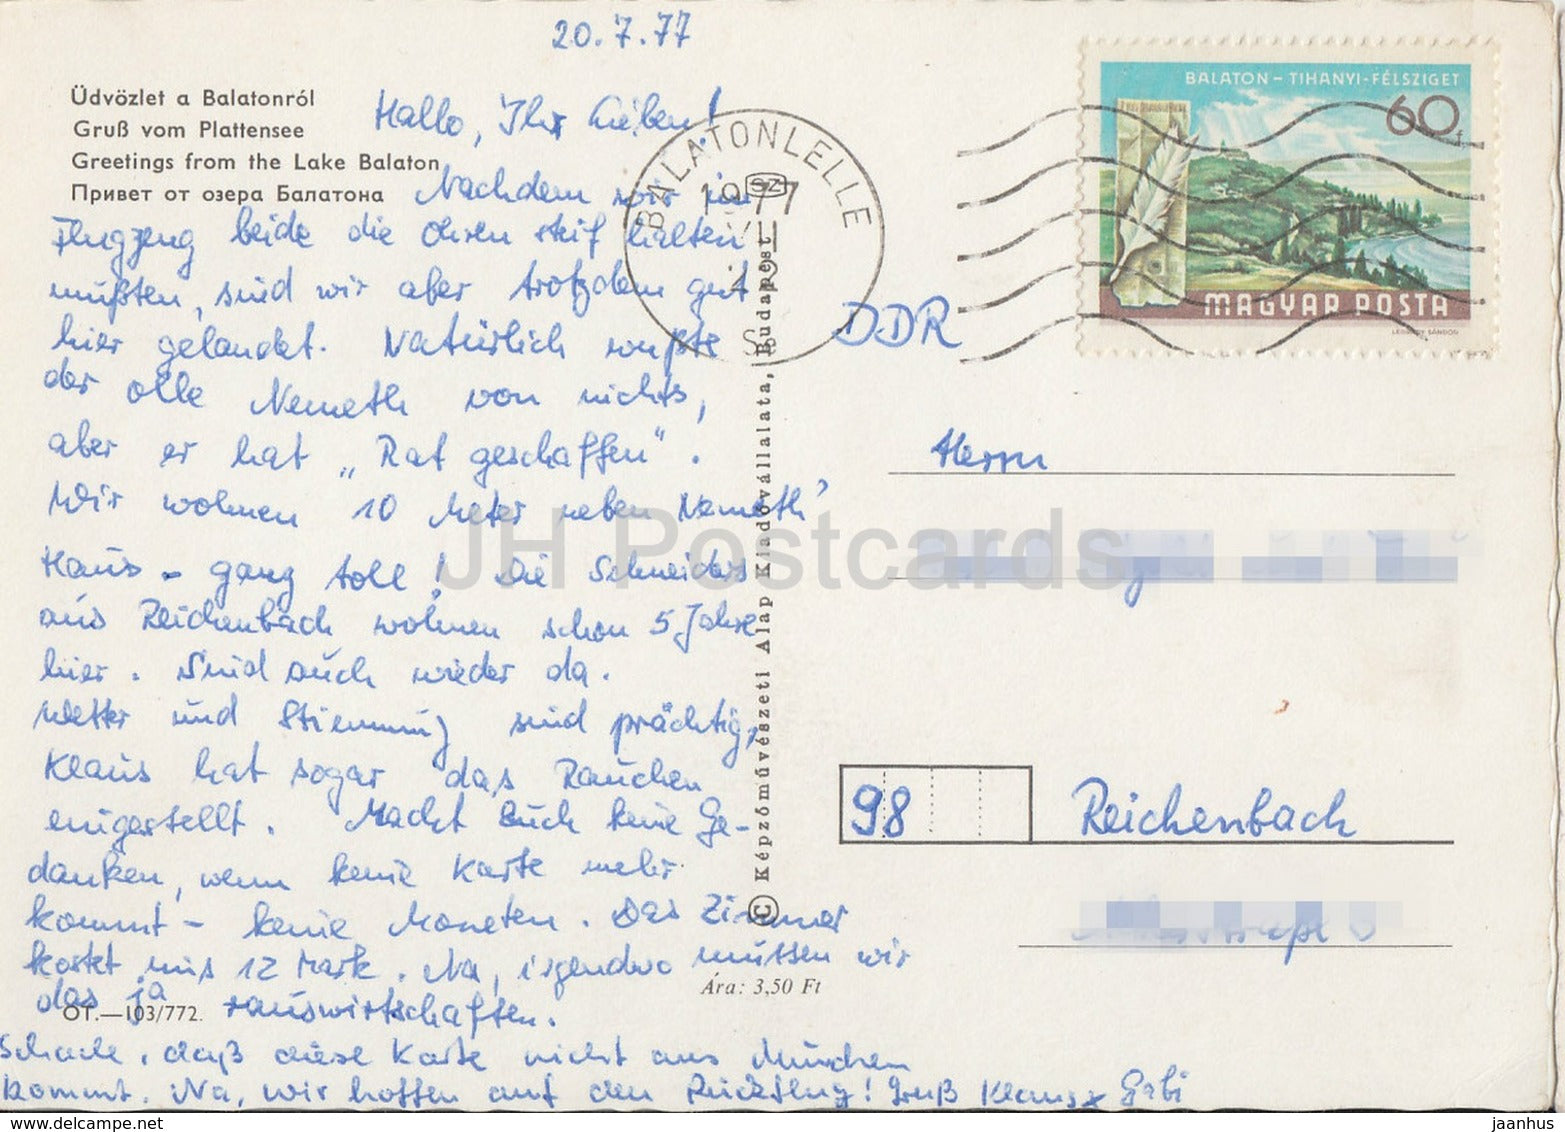 20.7.77
Üdvözlet a Balatonról
Gruß vom Plattensee
Greetings from the Lake Balaton
Привет от озера Балатона
Hallo, Ihr Lieben!
Nachdem wir im
Flugzeug beide die Ohren steif halten
mußten, sind wir aber trotzdem gut
hier gelandet. Natürlich wußte
der olle Nemeth von nichts,
aber er hat „Rat geschaffen“.
Wir wohnen 10 Meter neben Nemeth's
Haus - ganz toll! Die Schneiders
aus Reichenbach wohnen schon 5 Jahre
hier. Sind auch wieder da.
Wetter und Stimmung sind prächtig,
Klaus hat sogar das Rauchen
eingestellt. Macht Euch keine Ge-
danken, wenn keine Karte mehr
kommt - keine Moneten. Das Zimmer
kostet uns 12 Mark. Na, irgendwo müssen wir
das ja rauswirtschaften.
Schade, daß diese Karte nicht aus München
kommt. Na, wir hoffen auf den Rückflug! Gruß Klaus + Gabi
OT.—103/772.
Ára: 3,50 Ft
© Képzőművészeti Alap Kiadóvállalata, Budapest
BALATONLELLE
1977
BALATON - TIHANYI-FÉLSZIGET
60f
MAGYAR POSTA
LÉGRÁDY SÁNDOR
DDR
Herrn
98 Reichenbach
JH Postcards
delcampe.net
jaanhus